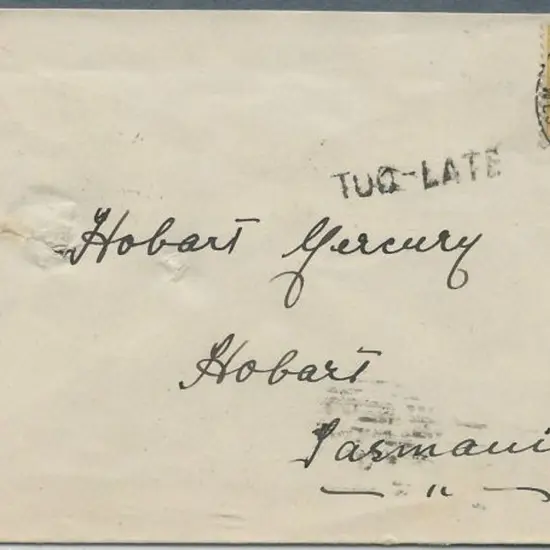 TOO-LATE
Hobart Mercury
Hobart
Tasmani
"